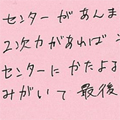 センターがあんま
2次力があれば
センターにかたよる
みがいて最後